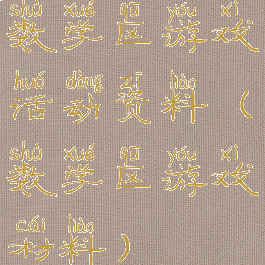 shù xué qū yóu xì
数学区游戏
huó dòng zī liào
活动资料（
shù xué qū yóu xì
数学区游戏
cái liào
材料）